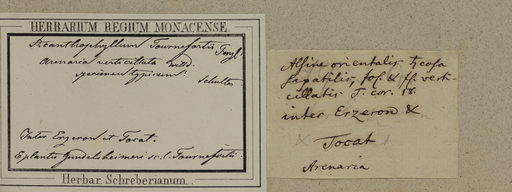 HERBARIUM REGIUM MONACENSE.
Acanthophyllum Tournefortii Fenzl.
Arenaria verticillata Willd.
specimen typicum!
Schultes
Inter Erzeron et Tocat.
E plantis Gundelsheimeri s. l. Tournefortii.
Herbar. Schreberianum.
Alsine orientalis frcosa
sapatilis, fol. & fl. verti-
cillatis T. cor. 18.
inter Erzeron &
Tocat
Arenaria